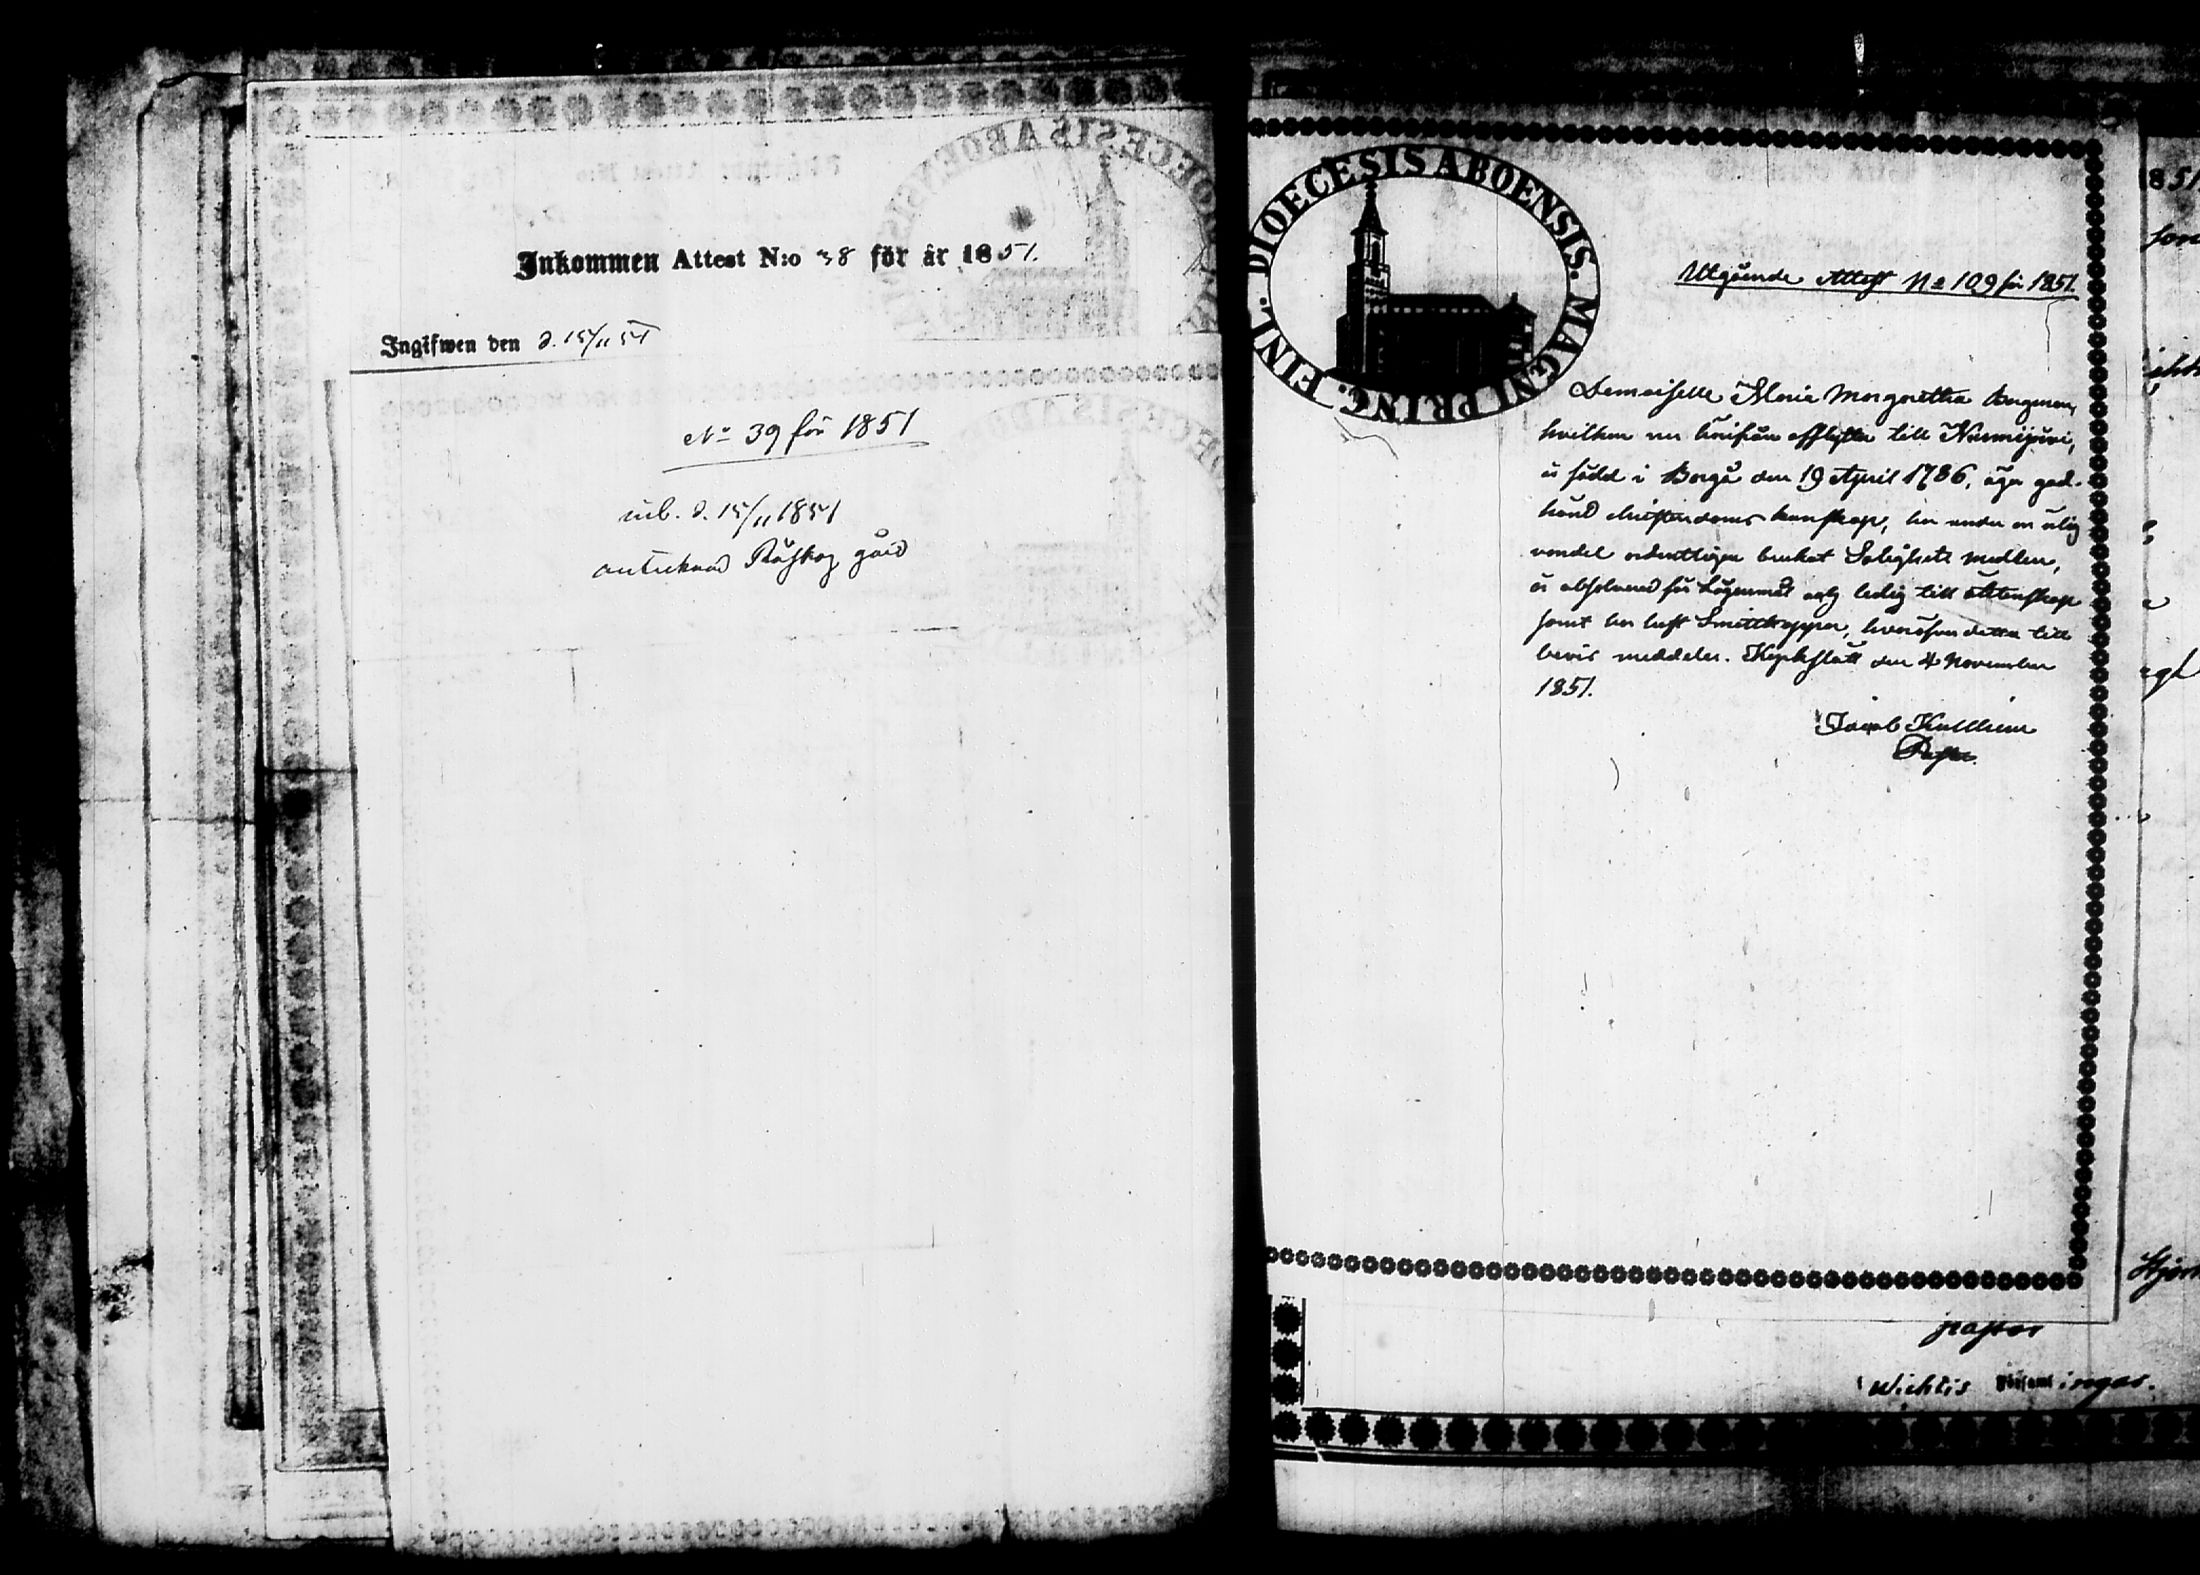 Inkommen Attest N:o 38 för år 1851.
Ingifwen den d. 15/11 51
No 39 för 1851
inl. d. 15/11 1851
antecknad Röjskog gård
DIOECESIS ABOENSIS. MAGNI PRINC. FINL.
Utgående Attest No 109 för 1851.
Demoiselle Maria Margaretha Bergman,
hvilken nu härifrån afflyttar till Nurmijärvi,
är född i Borgå den 19 April 1786, äger god-
känd christendoms kunskap, har under en ärlig
vandel ordentligen brukat Salighets medlen,
är absolverad för Lägersmål och ledig till äktenskap
samt har haft Smittkoppor, hvarafven detta till
bevis meddelas. Kyrkslätt den 4 November
1851.
Jacob
Pastor.
pastor
Wichtis Församlingar.